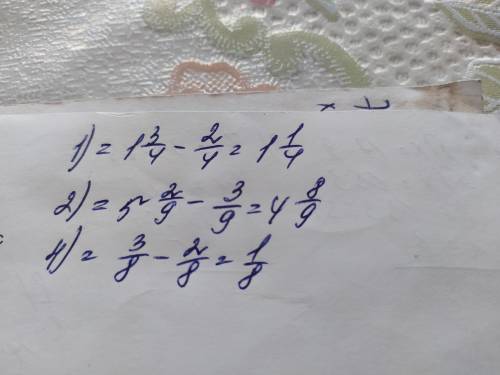 1) = 1 3/4 - 2/4 = 1 1/4
2) = 5 2/9 - 3/9 = 4 8/9
4) = 3/8 - 2/8 = 1/8